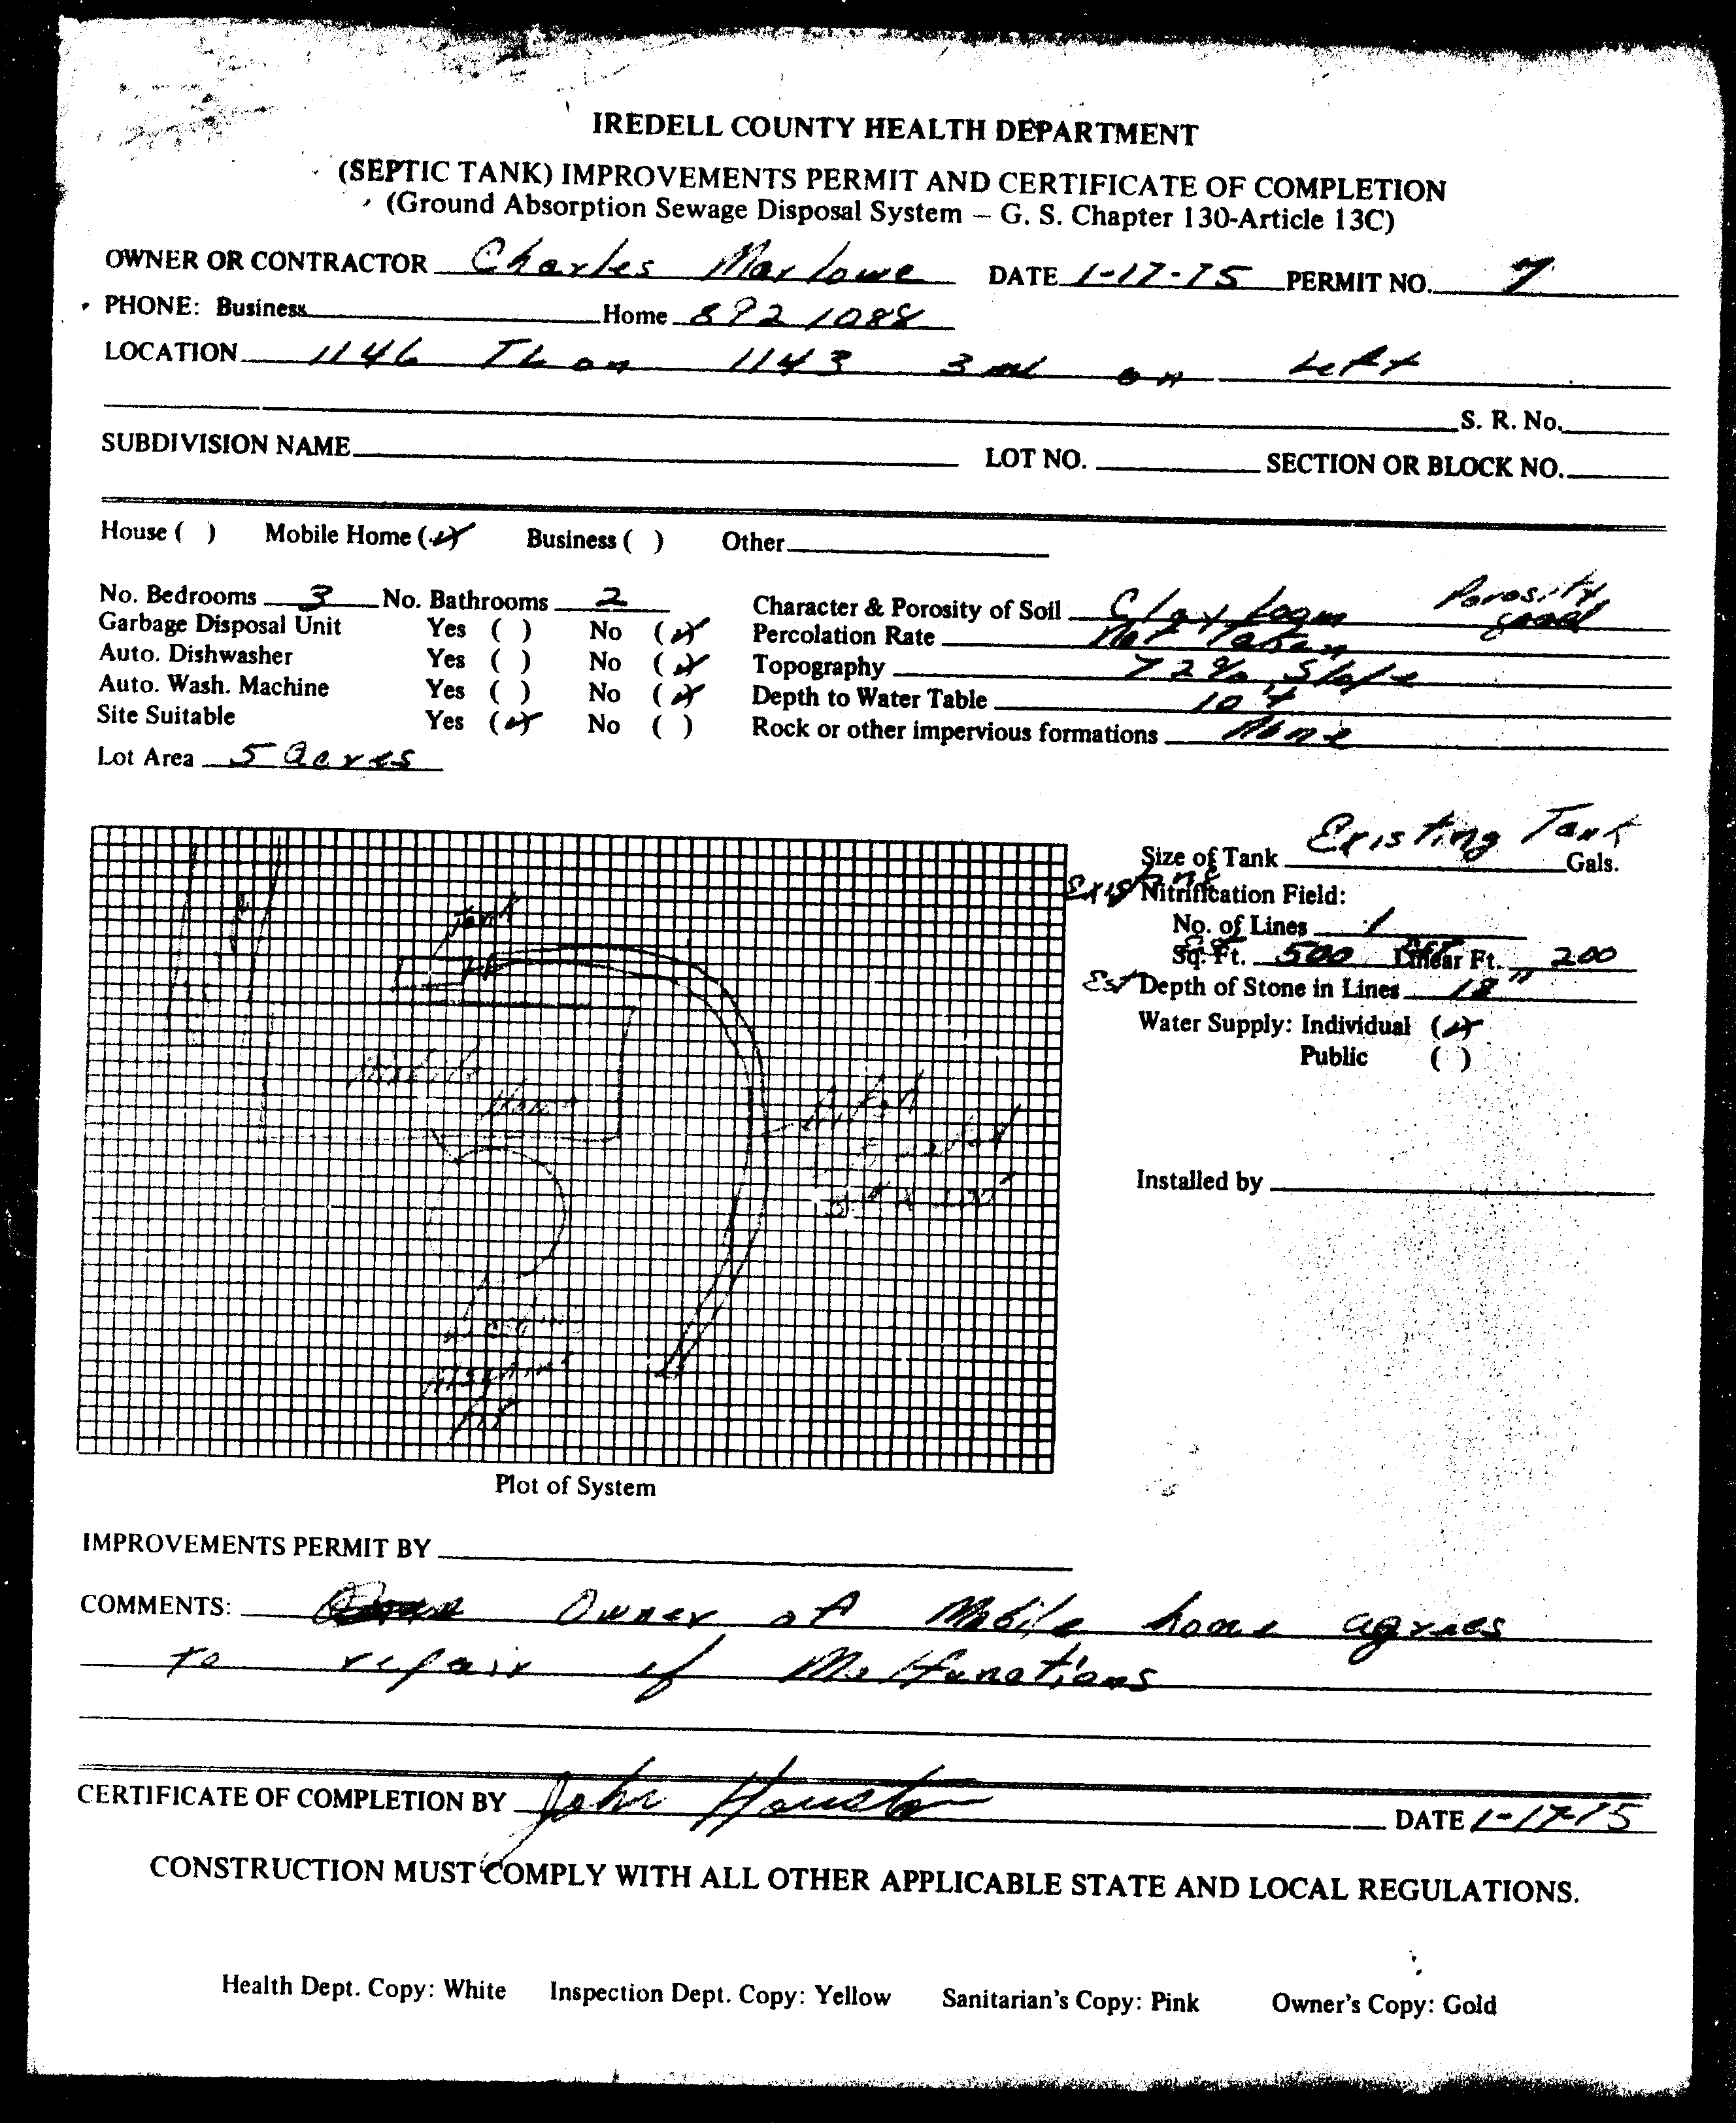 IREDELL COUNTY HEALTH DEPARTMENT
(SEPTIC TANK) IMPROVEMENTS PERMIT AND CERTIFICATE OF COMPLETION
(Ground Absorption Sewage Disposal System – G. S. Chapter 130-Article 13C)
OWNER OR CONTRACTOR Charles Marlowe DATE 1-17-75 PERMIT NO. 7
PHONE: Business Home 892 1088
LOCATION 1146 TL on 1143 3 on Left
S. R. No.
SUBDIVISION NAME LOT NO. SECTION OR BLOCK NO.
House ( ) Mobile Home (✓) Business ( ) Other
No. Bedrooms 3 No. Bathrooms 2 Character & Porosity of Soil Clay loam Porosity good
Garbage Disposal Unit Yes ( ) No (✓) Percolation Rate Not Taken
Auto. Dishwasher Yes ( ) No (✓) Topography >2% Slope
Auto. Wash. Machine Yes ( ) No (✓) Depth to Water Table 10'+
Site Suitable Yes (✓) No ( ) Rock or other impervious formations None
Lot Area 5 acres
Size of Tank Existing Tank Gals.
Existing Nitrification Field:
No. of Lines 1
Sq. Ft. 500 Linear Ft. 200
Est Depth of Stone in Lines 18"
Water Supply: Individual (✓)
Public ( )
Installed by
Tank
Mobile
Home
Plot of System
IMPROVEMENTS PERMIT BY
COMMENTS: Owner of Mobile home agrees
to repair if Malfunctions
CERTIFICATE OF COMPLETION BY John Houston DATE 1-17-75
CONSTRUCTION MUST COMPLY WITH ALL OTHER APPLICABLE STATE AND LOCAL REGULATIONS.
Health Dept. Copy: White Inspection Dept. Copy: Yellow Sanitarian's Copy: Pink Owner's Copy: Gold